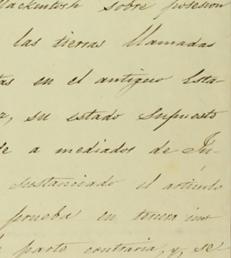 Mackintosh sobre posesion
las tierras llamadas
en el antiguo Esta
su estado supuesto
a mediados de Ju
sustanciado el artículo
prueba en
parte contraria, y, se